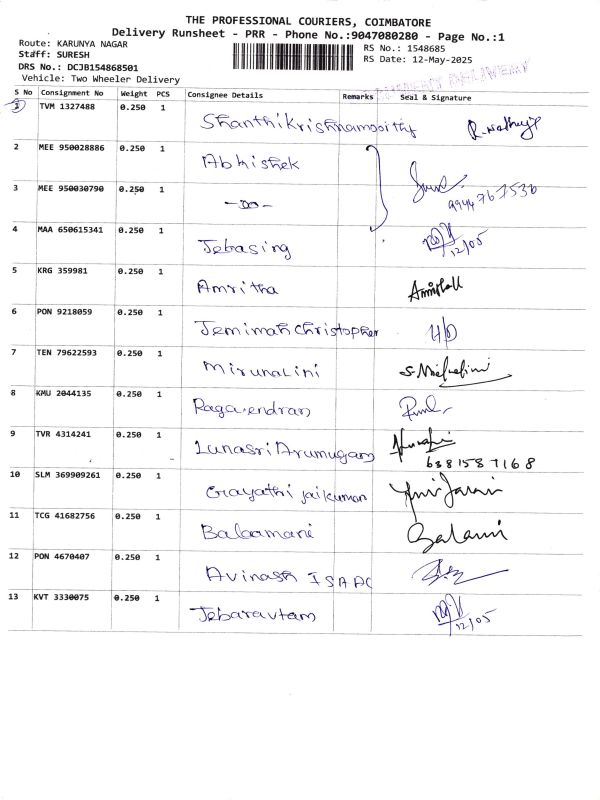 THE PROFESSIONAL COURIERS, COIMBATORE
Delivery Runsheet - PRR - Phone No.:9047080280 - Page No.:1
Route: KARUNYA NAGAR
RS No.: 1548685
Staff: SURESH
RS Date: 12-May-2025
DRS No.: DCJB154868501
Vehicle: Two Wheeler Delivery
S No Consignment No Weight PCS Consignee Details Remarks Seal & Signature
1 TVM 1327488 0.250 1 Shanthikrishnamoorthy
2 MEE 950028886 0.250 1 Abhishek
3 MEE 950030790 0.250 1 -do- 9944767530
4 MAA 650615341 0.250 1 Jebasing 12/05
5 KRG 359981 0.250 1 Amritha
6 PON 9218059 0.250 1 Jemimah Christopher H/D
7 TEN 79622593 0.250 1 Mirunalini
8 KMU 2044135 0.250 1 Ragavendran
9 TVR 4314241 0.250 1 Lunasri Arumugam 6381587168
10 SLM 369909261 0.250 1 Gayathri jaikumar
11 TCG 41682756 0.250 1 Balamani Balamni
12 PON 4670407 0.250 1 Avinash ISAAC
13 KVT 3330075 0.250 1 12/05